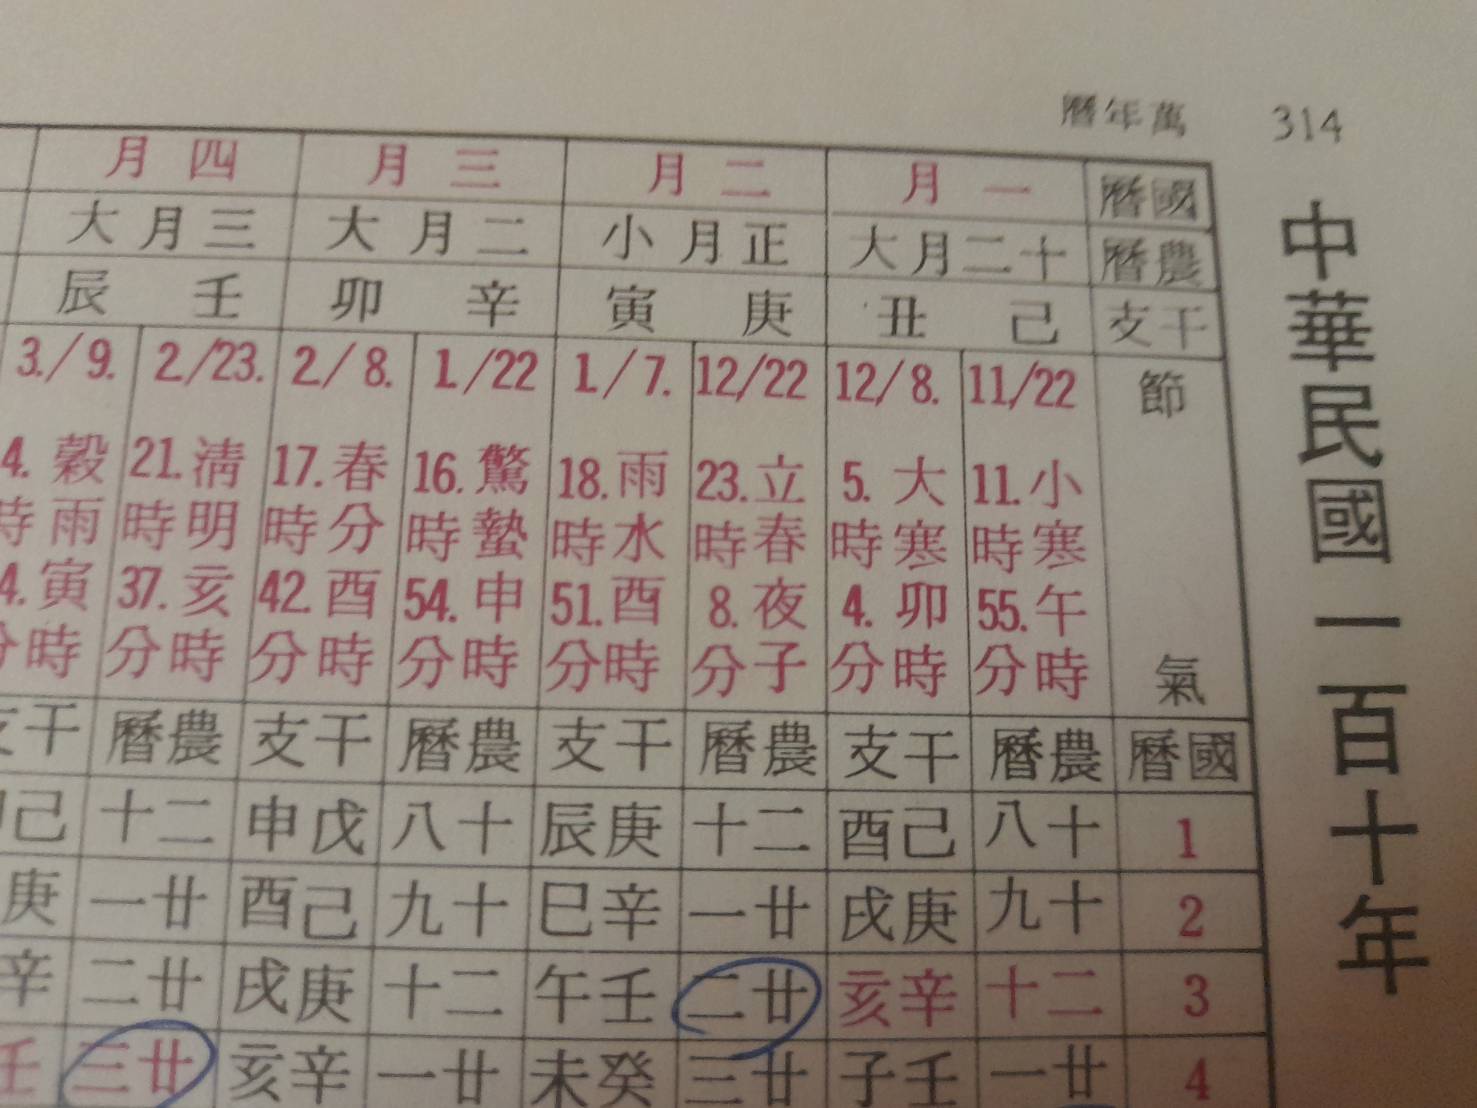 314
萬年曆
中華民國一百十年
國曆 一月 二月 三月 四月
農曆 十二月大 正月小 二月大 三月大
干支 己丑 庚寅 辛卯 壬辰
節氣 11/22 12/8. 12/22 1./7. 1./22 2/8. 2/23. 3./9.
小寒午時 11.時55.分
大寒卯時 5.時4.分
立春夜子 23.時8.分
雨水酉時 18.時51.分
驚蟄申時 16.時54.分
春分酉時 17.時42.分
清明亥時 21.時37.分
穀雨寅時 4.時4.分
國曆 農曆 干支 農曆 干支 農曆 干支 農曆 干支
1 十八 己酉 二十 庚辰 十八 戊申 二十 己
2 十九 庚戌 廿一 辛巳 十九 己酉 廿一 庚
3 二十 辛亥 廿二 壬午 二十 庚戌 廿二 辛
4 廿一 壬子 廿三 癸未 廿一 辛亥 廿三 壬